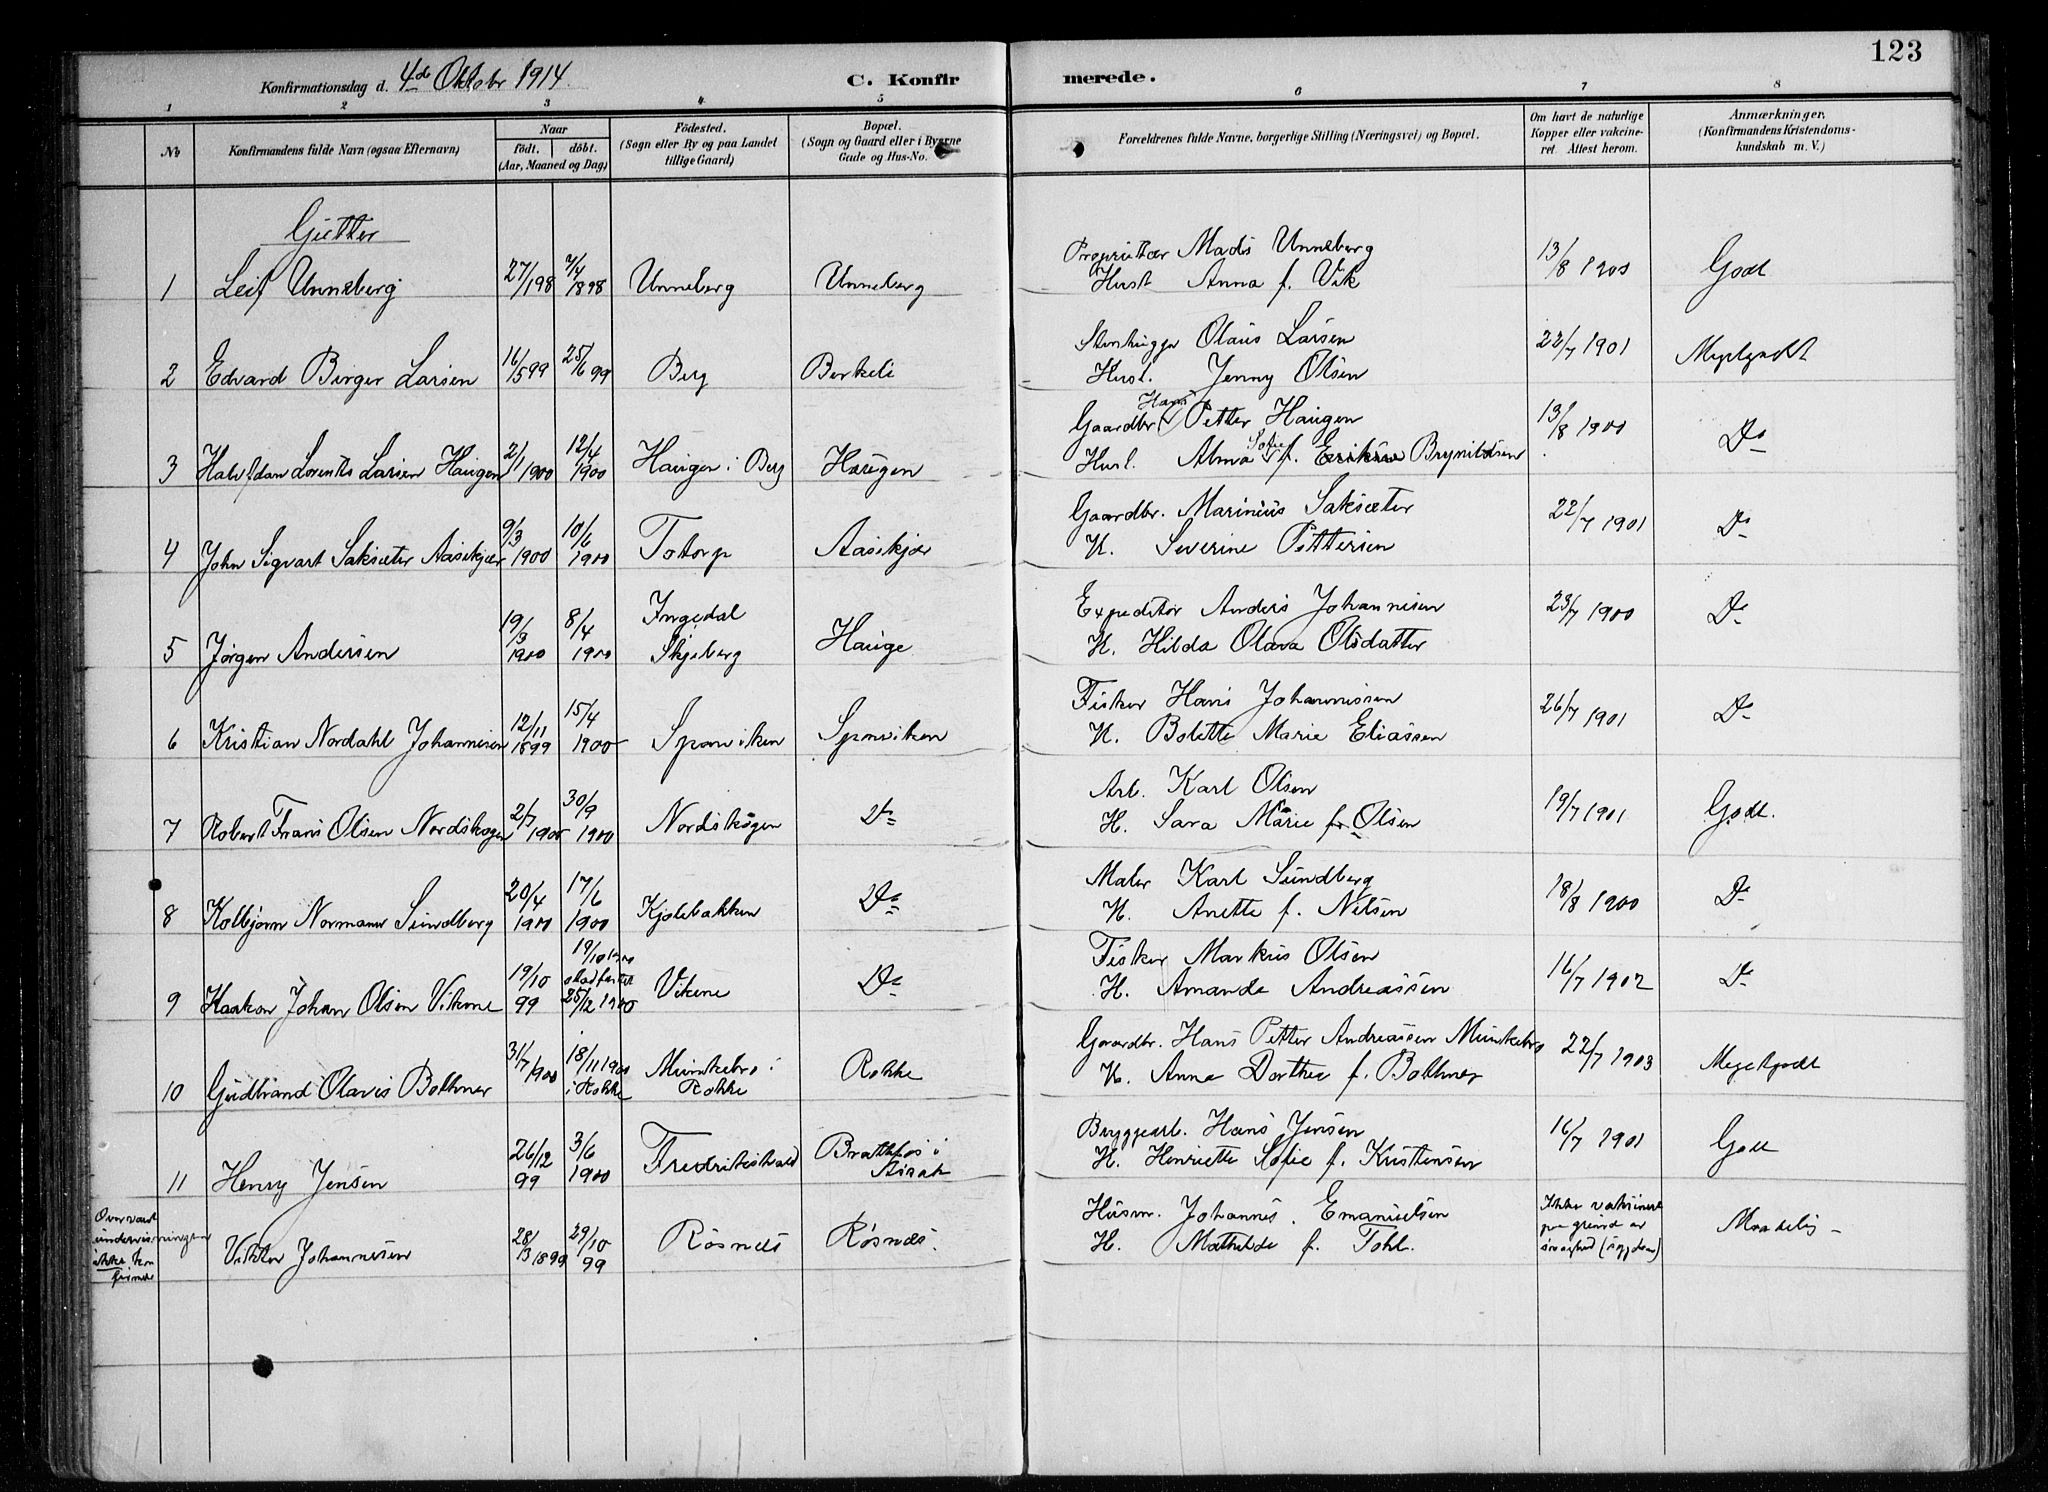 123
Konfirmationsdag d. 4de Oktober 1914. C. Konfirmerede.
1 2 3 4 5 6 7 8
No
Konfirmandens fulde Navn (ogsaa Efternavn)
Naar
födt. döbt.
(Aar, Maaned og Dag)
Födested.
(Sogn eller By og paa Landet
tillige Gaard)
Bopæl.
(Sogn og Gaard eller i Byerne
Gade og Hus-No.
Forældrenes fulde Navne, borgerlige Stilling (Næringsvei) og Bopæl.
Om havt de naturlige
Kopper eller vakcine-
ret. Attest herom.
Anmærkninger.
(Konfirmandens Kristendoms-
kundskab m. V.)
Gutter
1 Leif Unneberg 27/1 98 7/4 1898 Unneberg Unneberg
Proprietær Mads Unneberg
Hust Anna f. Vik
13/8 1900 Godt
2 Edvard Birger Larsen 16/5 99 25/6 99 Berg Berkeli
Stenhugger Olaus Larsen
Hust. Jenny Olsen
22/7 1901 Meget godt
3 Halvdan Lorents Larsen Haugen 2/1 1900 12/4 1900 Haugen i Berg Haugen
Gaardbr. Hans Petter Haugen
Hust. Alma Sofie f. Brynildsen
13/8 1900 Do
4 John Sigvart Saksæter Aaseskjær 9/3 1900 10/6 1900 Totorp Aaseskjær
Gaardbr. Marinius Saksæter
H. Severine Pettersen
22/7 1901 Do
5 Jørgen Andersen 19/3 1900 8/4 1900 Ingedal Skjeberg Hauge
Expeditør Anders Johannesen
H. Hilda Olava Olsdatter
23/7 1900 Do
6 Kristian Nordahl Johannesen 12/11 1899 15/4 1900 Sponviken Sponviken
Fisker Hans Johannessen
H. Bolette Marie Eliassen
26/7 1901 Do
7 Robert Frans Olsen Nordskogen 2/7 1900 30/9 1900 Nordskogen Do
Arb. Karl Olsen
H. Sara Marie f. Olsen
19/7 1901 Godt.
8 Kolbjørn Normann Sundberg 20/4 1900 17/6 1900 Kjølebakken Do
Maler Karl Sundberg
H. Anette f. Nilsen
18/8 1900 Do
9 Haakon Johan Olsen Vikene 19/10 99 19/10 1900 stadfæstet 25/12 1900 Vikene Do
Fisker Markus Olsen
H. Amanda Andreassen
16/7 1902 Do
10 Gudbrand Olaves Bothner 31/7 1900 18/11 1900 i Rokke Munkebro i Rokke Rokke
Gaardbr. Hans Petter Andreassen Munkebro
H. Anna Dorthea f. Bothner
22/7 1903 Meget godt
11 Henry Jensen 26/12 99 3/6 1900 Fredrikshald Brattfos i Asak
Bryggearb. Hans Jensen
H. Henriette Sofie f. Kristensen
16/7 1901 Godt
Overværet
undervisningen
ikke kon
firmert
Viktor Johannesen 28/3 1899 29/10 99 Røsnæs Røsnæs.
Husm. Johannes Emanuelsen
H. Mathilde f. Tohl.
Ikke vaksinert
paa grund av
svaghed (sygdom)
Maadelig